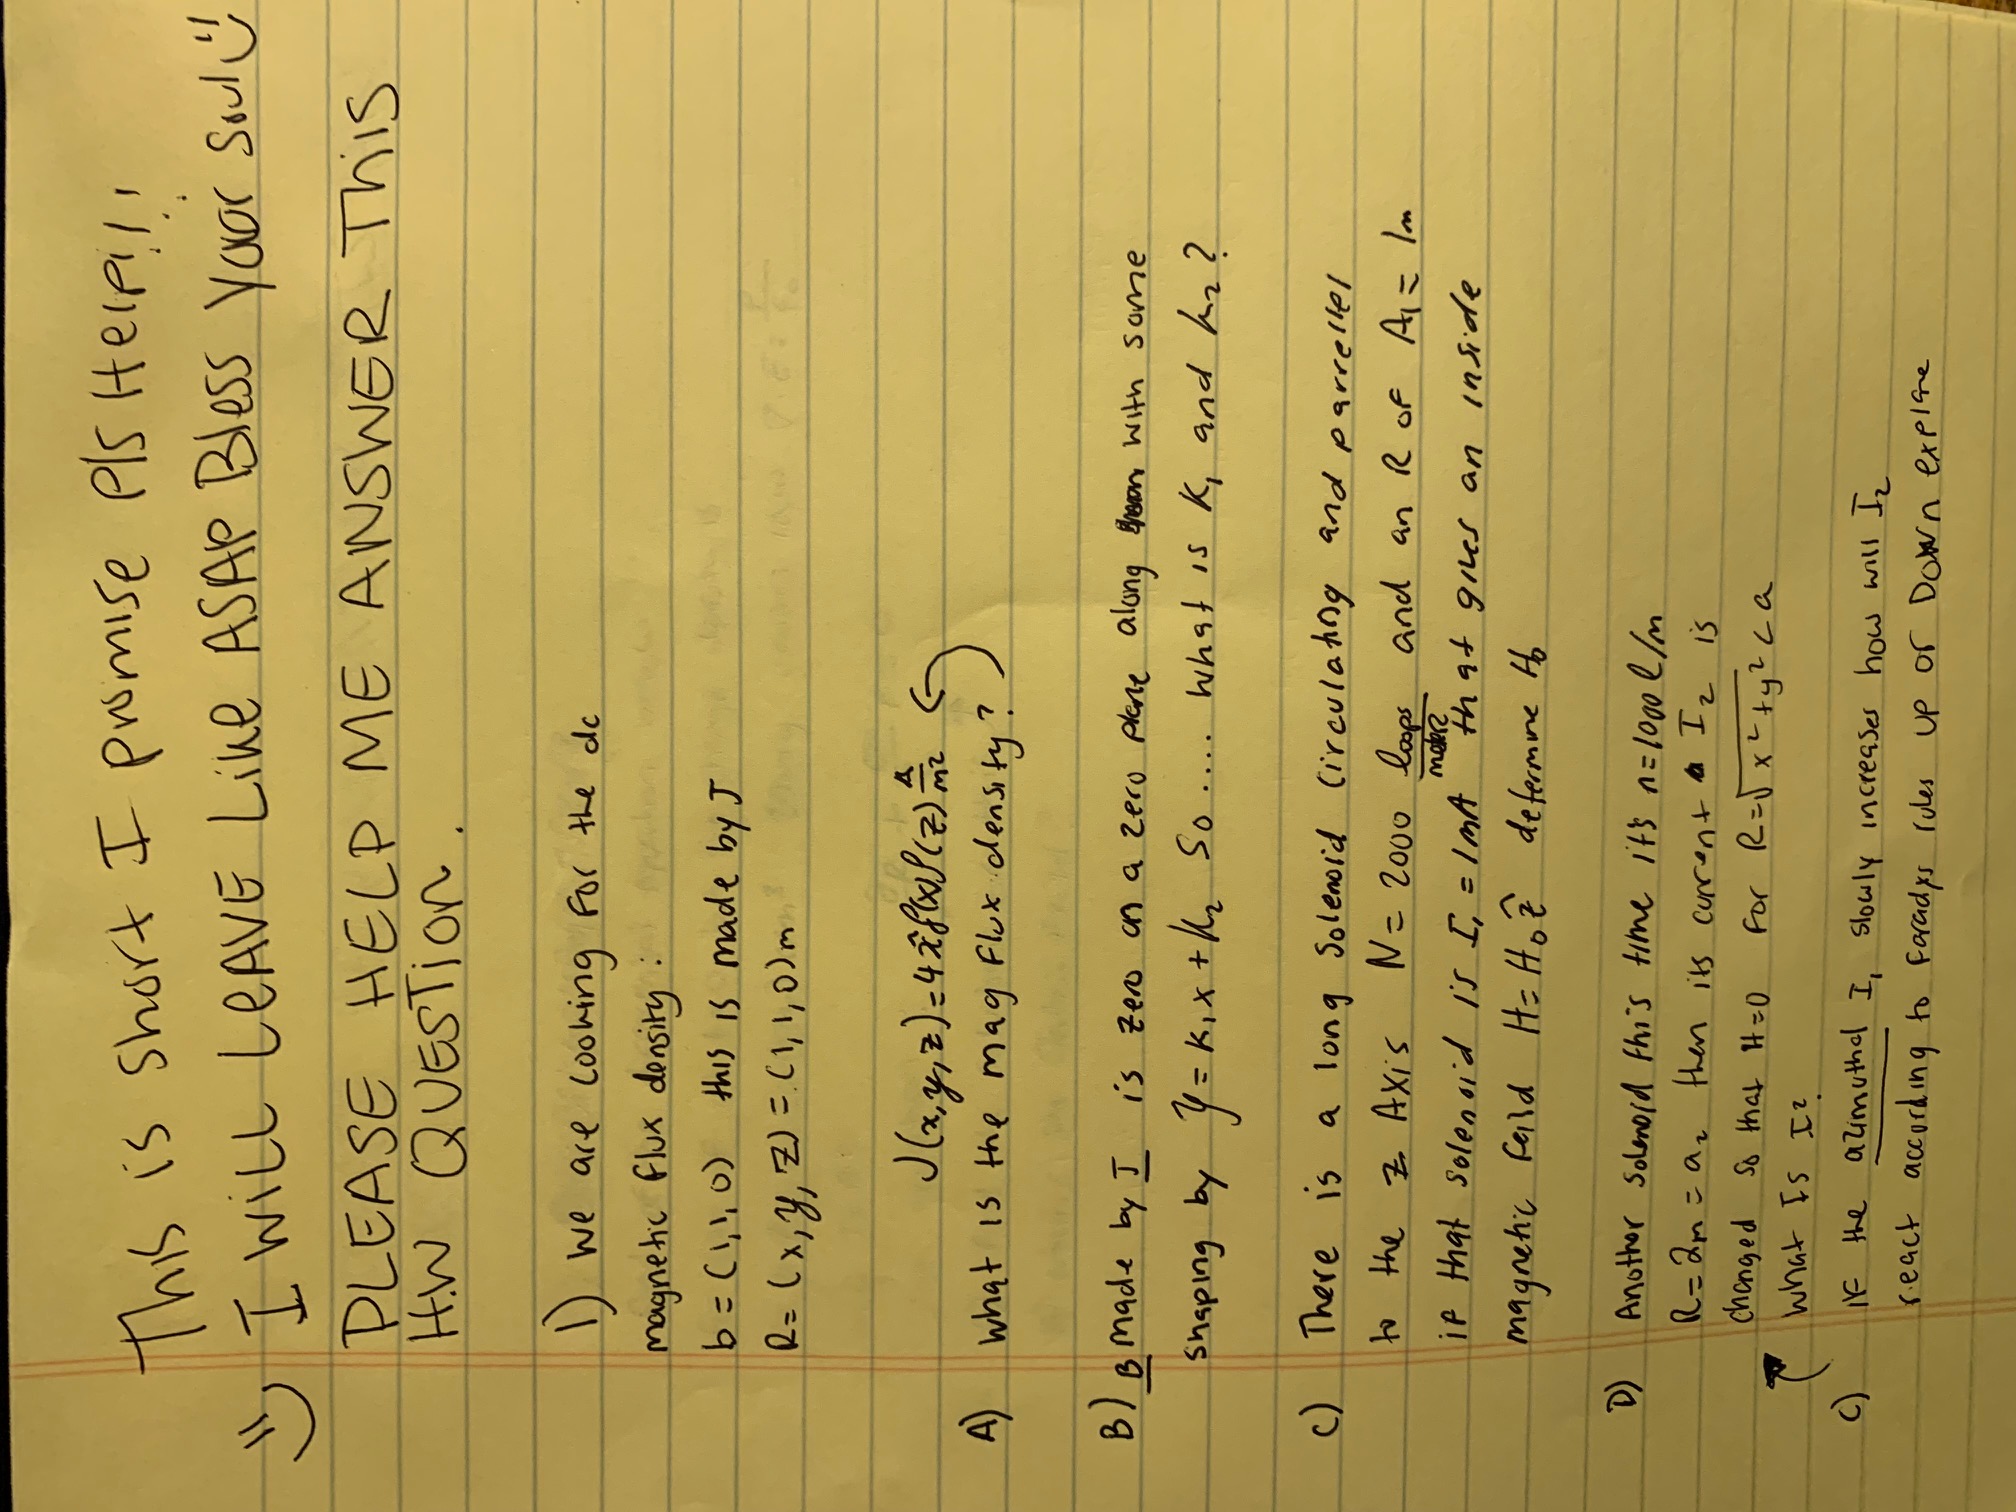 This is short I promise pls Help!!!
I will LEAVE Like ASAP Bless your soul
PLEASE HELP ME ANSWER This
H.W QUESTion.
1) we are looking for the dc
magnetic flux density:
b = (1,1,0) this is made by J
R= (x,y,z) = (1,1,0)m
J(x,y,z)=4x̂δ(x)δ(z) A/m²
A) what is the mag flux density?
B) B made by J is zero on a zero plane along with some
shaping by y=k₁x+k₂ So.... what is k₁ and k₂?
C) There is a long solenoid circulating and parrellel
to the z Axis N=2000 loops/meter and an R of A₁=1m
if that solenoid is I₁=1mA that gives an inside
magnetic feild H=H₀ẑ determine H₀
D) Another solenoid this time its n=1000 l/m
R=2m=a₂ then its current I₂ is
changed so that H=0 for R=√x²+y²<a
What Is I₂
C) IF the azimuthal I₁ slowly increases how will I₂
react according to faradys rules up or Down explane